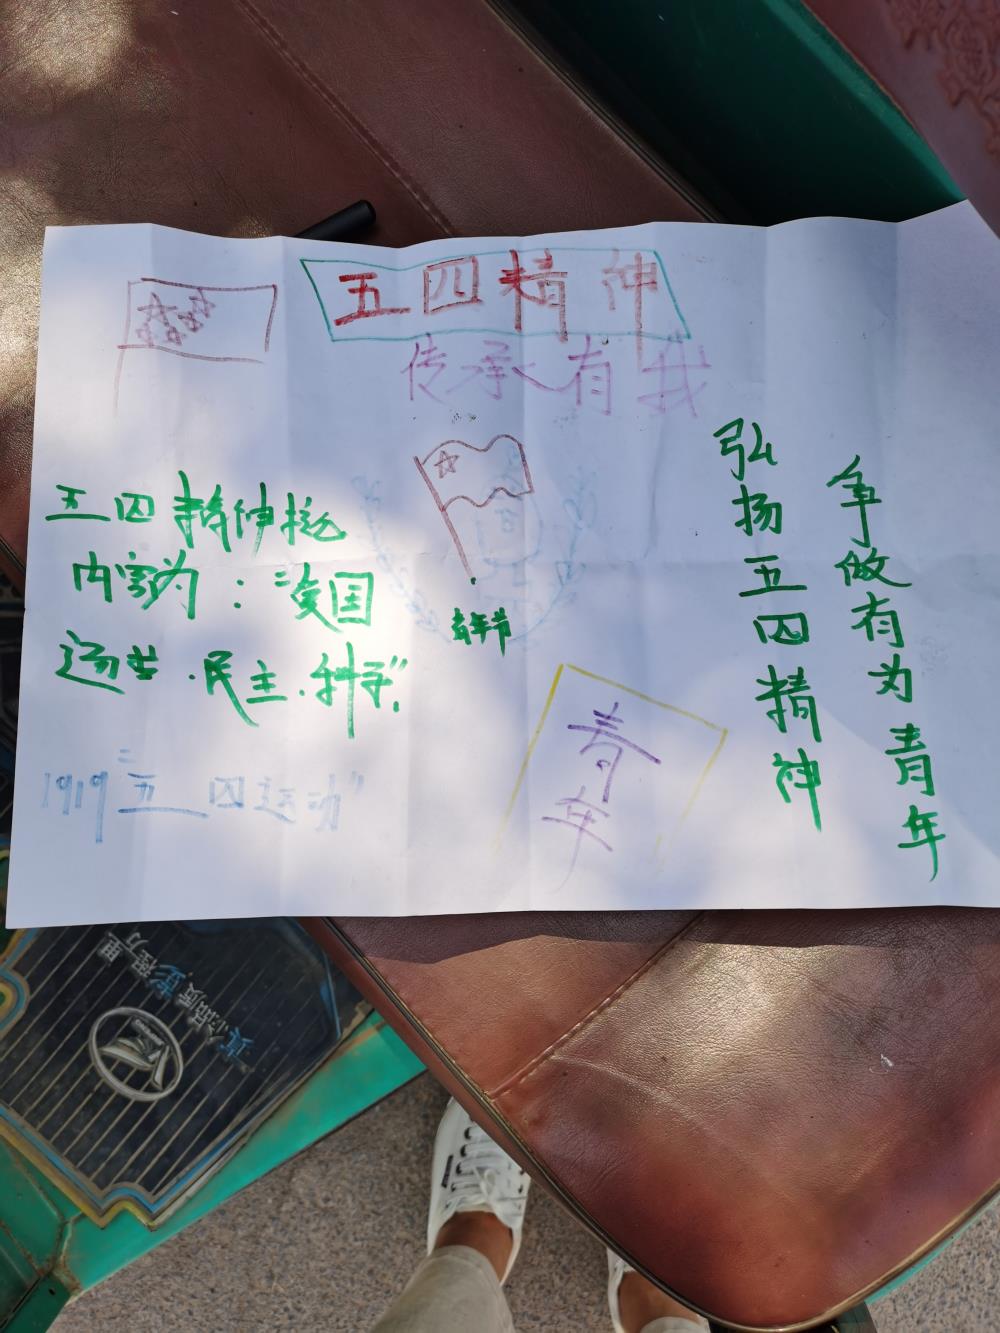 五四精神
传承有我
五四精神核心
内容为："爱国
进步.民主.科学".
1919"五四运动"
青年节
青年
弘扬五四精神
争做有为青年